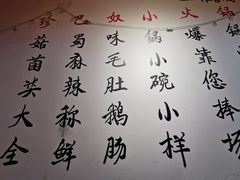 珍巴奴小火锅
菇菌类大全
蜀麻辣称鲜
味毛肚鹅肠
锅小碗小样
爆靠您捧场